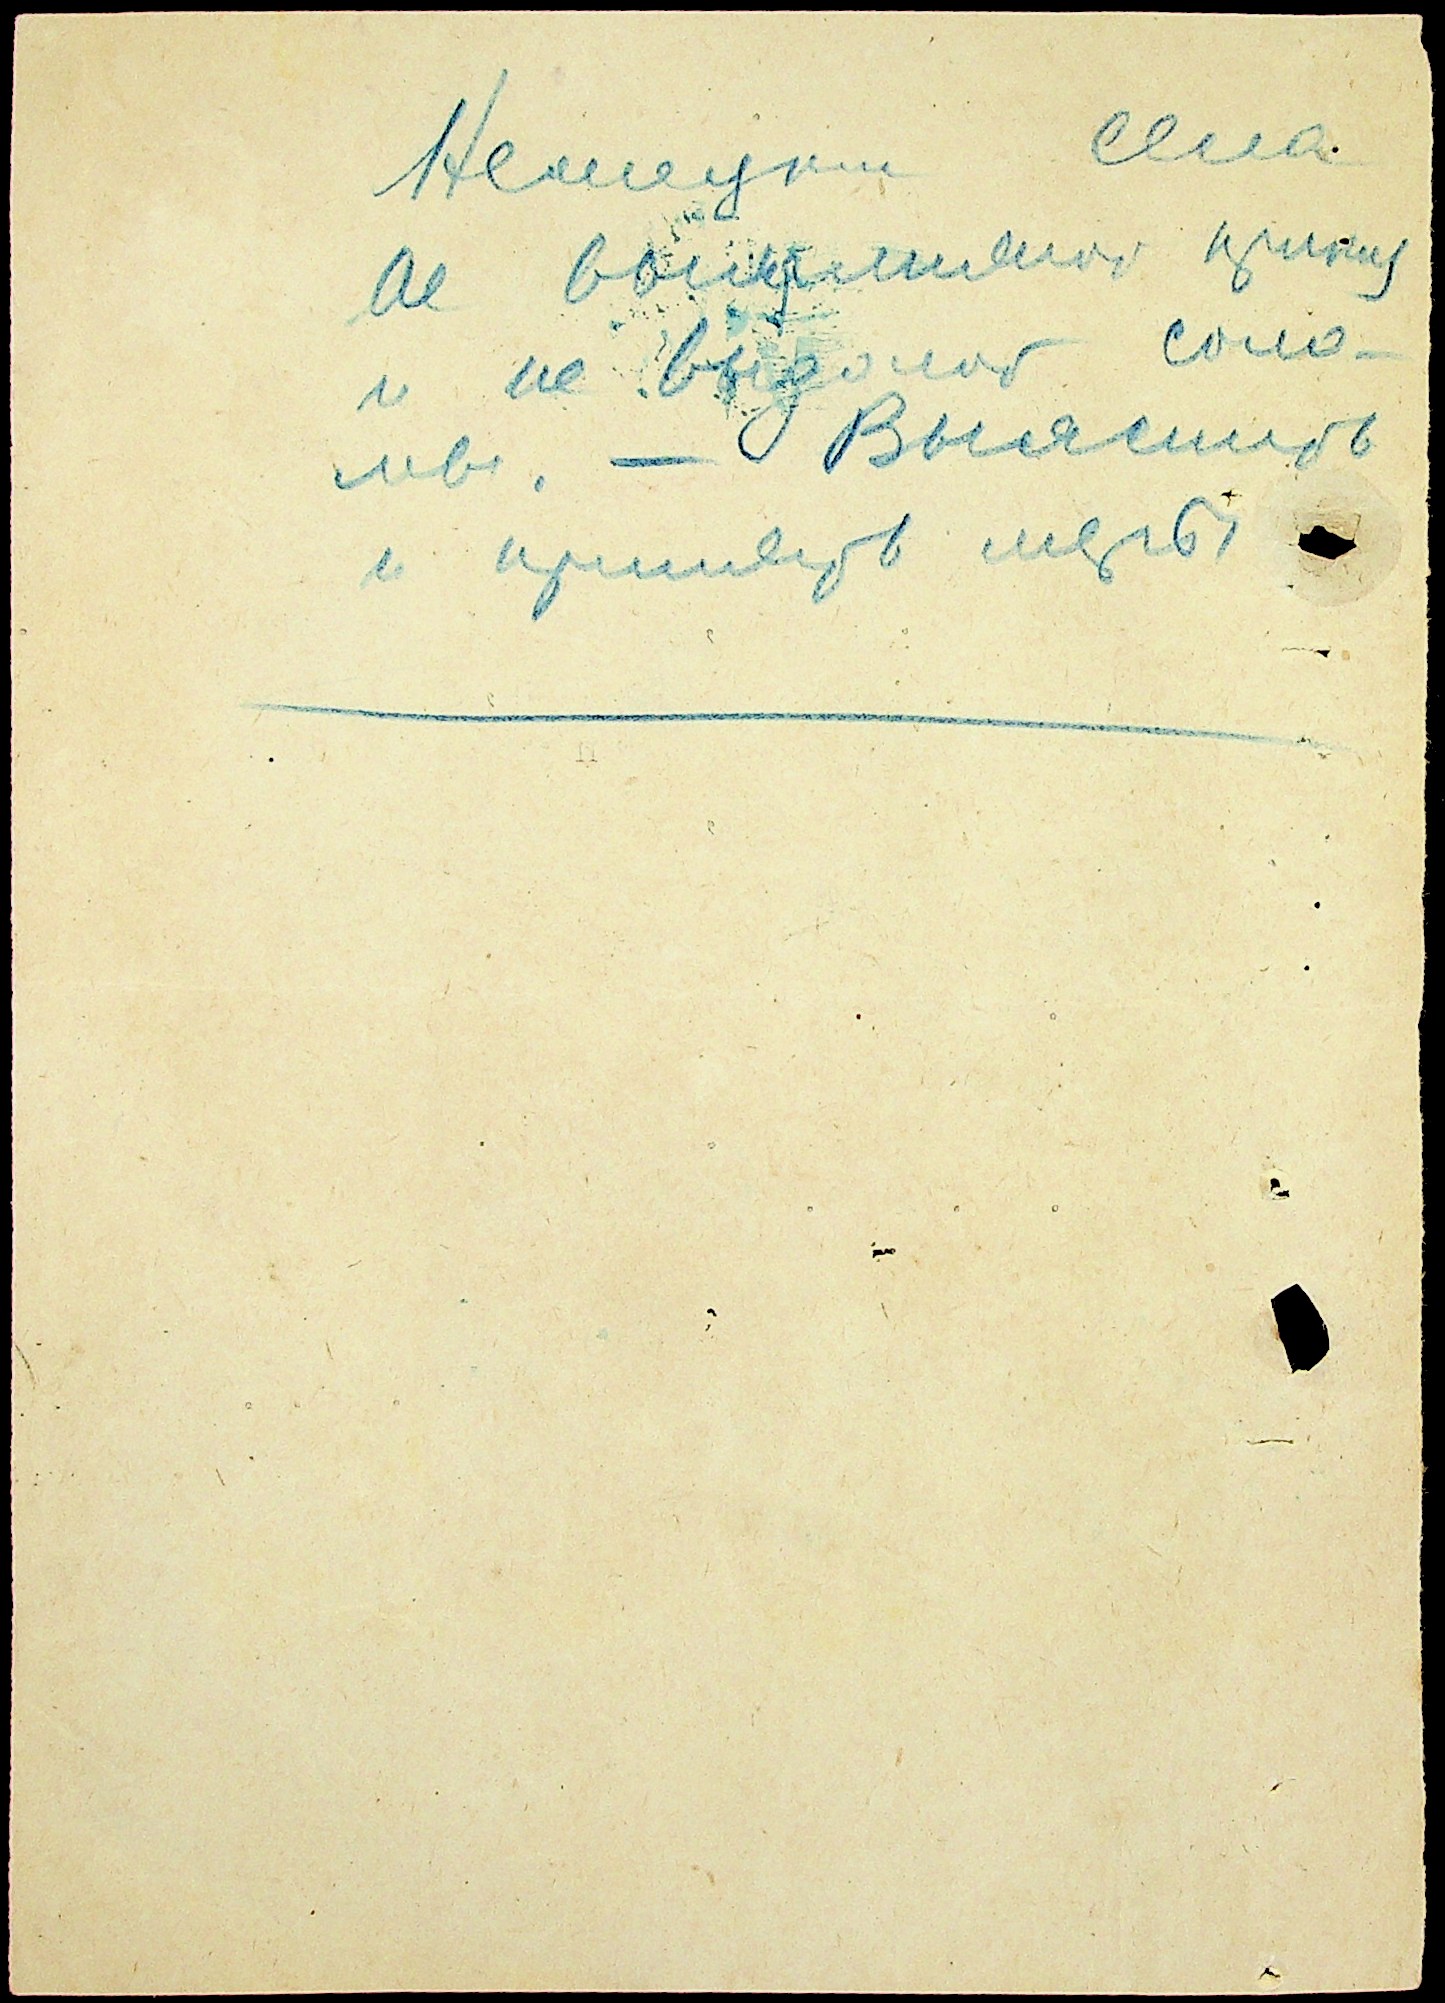 Немецкие села
не выполняют приказ
и не выдают соло-
мы. — Выяснить
и принять меры